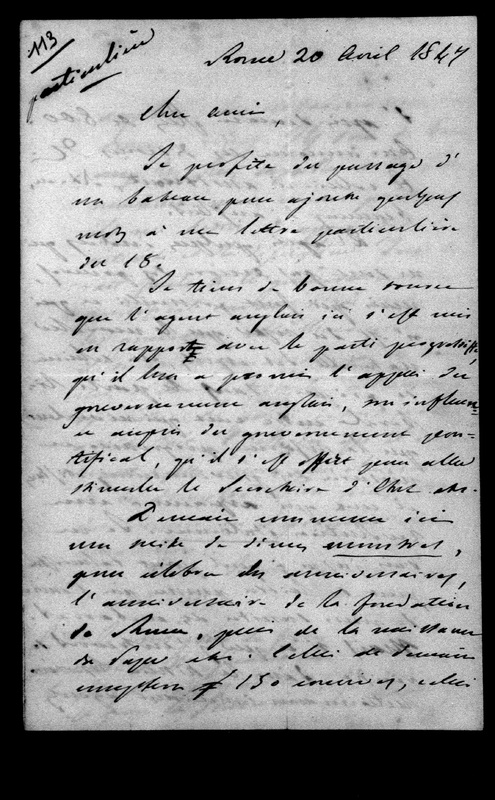 113
particulière
Rome 20 Avril 1847
Cher ami,
Je profite du passage d'
un bateau pour ajouter quelques
mots à ma lettre particulière
du 18.
Je tiens de bonne source
que l'agent anglais ici s'est mis
en rapport avec le parti progressiste,
qu'il leur a promis l'appui du
gouvernement anglais, son influen-
ce auprès du gouvernement pon-
tifical, qu'il s'est offert pour aller
stimuler le Secrétaire d'Etat etc.
Demain commence ici
une suite de dîners monstres,
pour célébrer des anniversaires,
l'anniversaire de la fondation
de Rome, puis de la naissance
du Pape etc. Celui de demain
comptera 150 convives, celui